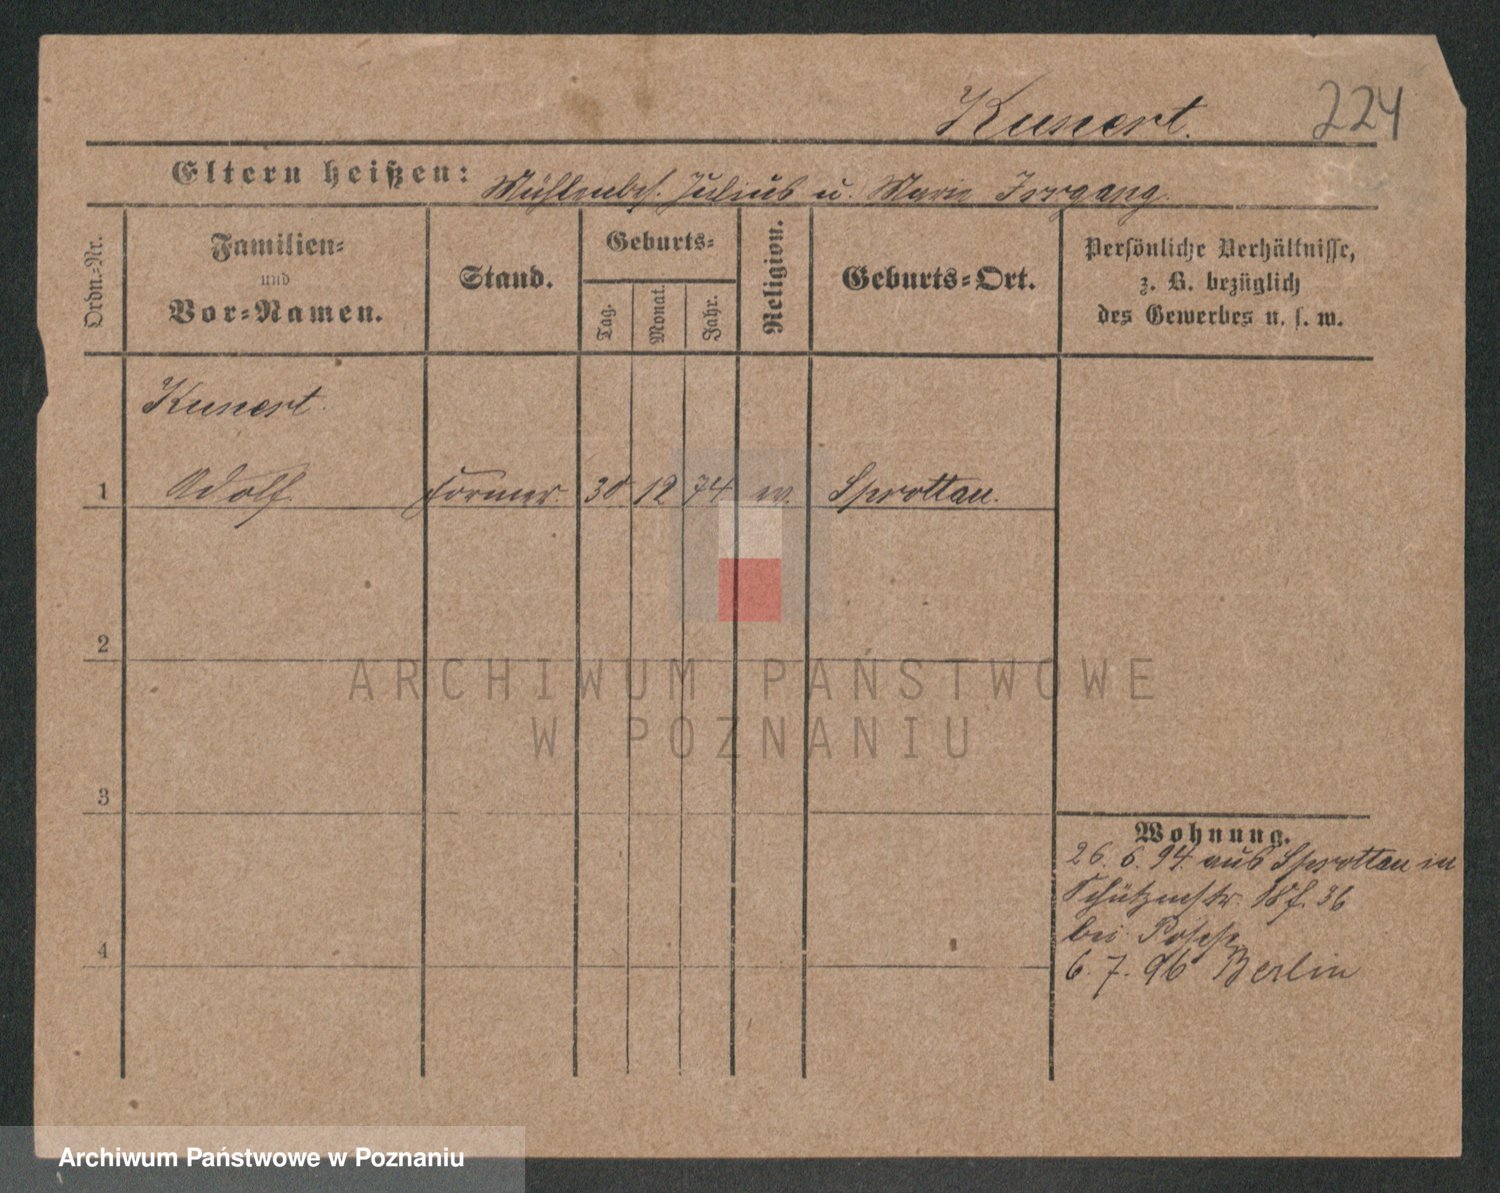 Kunert. 224
Eltern heißen: Mühlenbes. Julius u. Marie Irrgang.
Ordn.-Nr.
Familien-
und
Vor-Namen.
Stand.
Geburts-
Tag.
Monat.
Jahr.
Religion.
Geburts-Ort.
Persönliche Verhältnisse,
z. B. bezüglich
des Gewerbes u. s. w.
Kunert.
1 Adolf. Former. 30 12 74 ev. Sprottau.
2
3
4
Wohnung.
26. 6. 94. aus Sprottau in
Schützenstr. 18 f. 36
bei
6. 7. 96 Berlin
ARCHIWUM PAŃSTWOWE
W POZNANIU
Archiwum Państwowe w Poznaniu